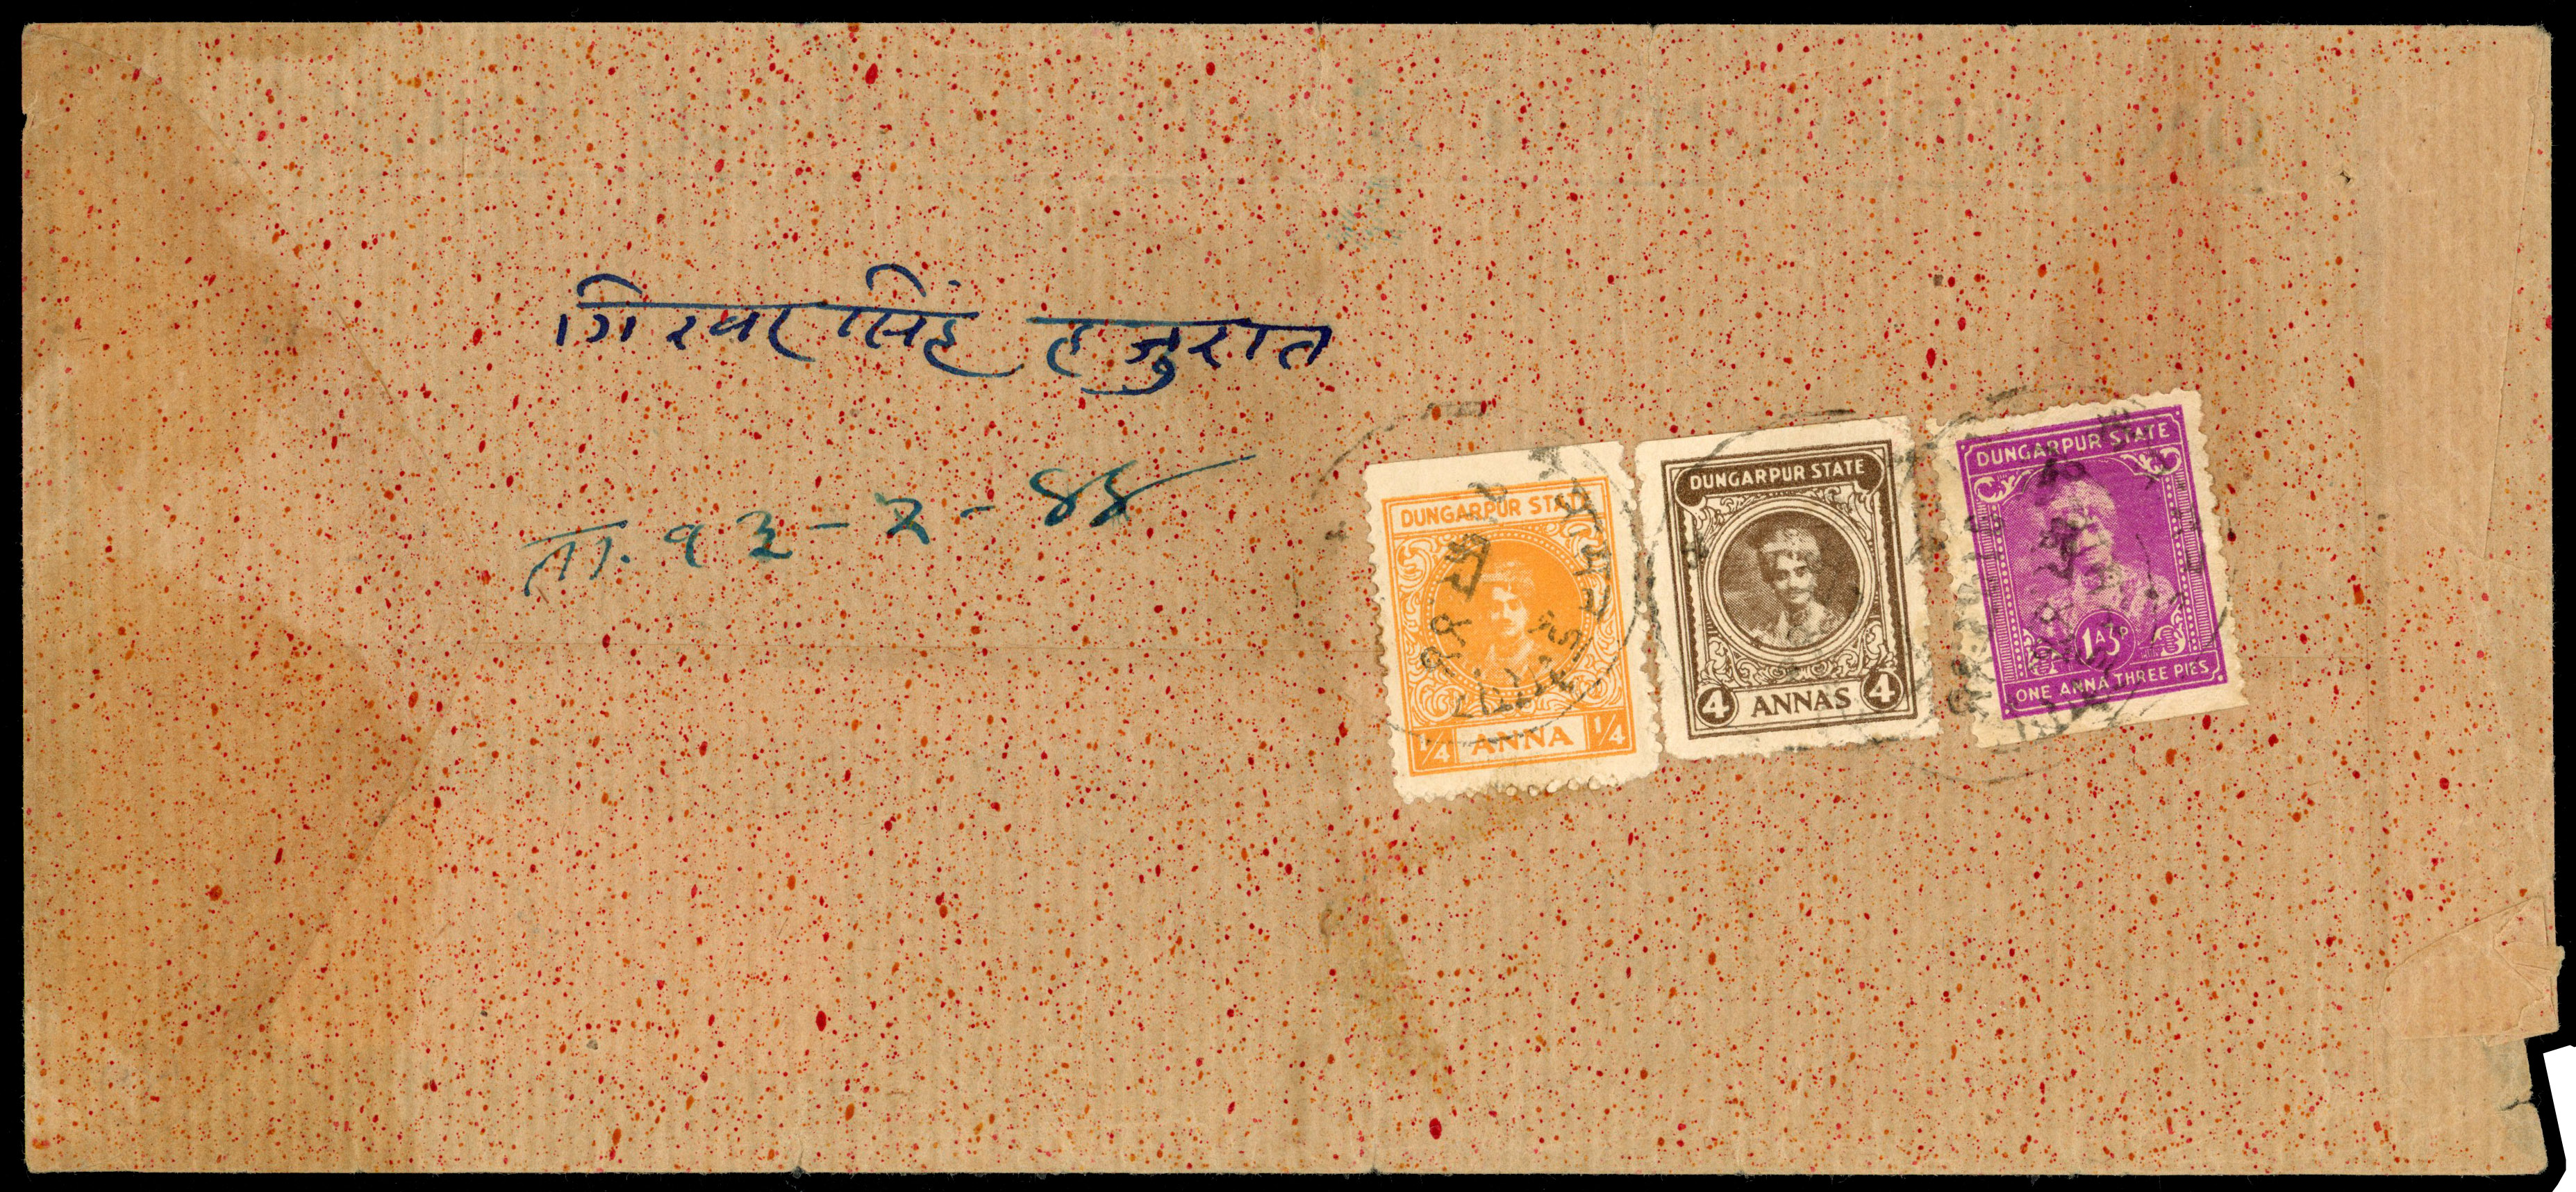 गिरवरसिंह हजुरात
ता. १३-२-४४
DUNGARPUR STATE
1/4 ANNA 1/4
DUNGARPUR STATE
4 ANNAS 4
DUNGARPUR STATE
1A3P
ONE ANNA THREE PIES